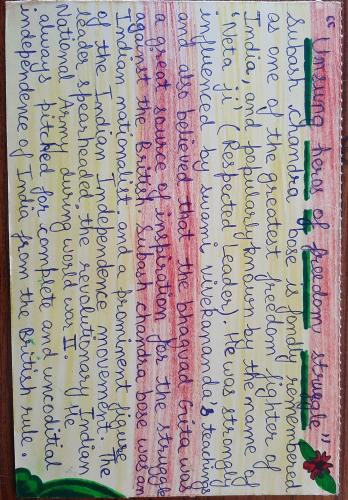 "Unsung heros of freedom struggle"
Subash chandra bose is fondly remembered
as one of the greatest freedom fighter of
India, and popularly known by the name of
'Neta ji' (Respected Leader). He was strongly
influenced by swami vivekananda's teachings
and also believed that the bhagwad Gita was
a great source of inspiration for the struggle
against the British. Subash chandra bose was an
Indian nationalist and a prominent figure
of the Indian Independence movement. The
leader spearheaded the revolutionary Indian
National Army during world war II. He
always pitched for complete and uncoditial
independence of India from the British rule.